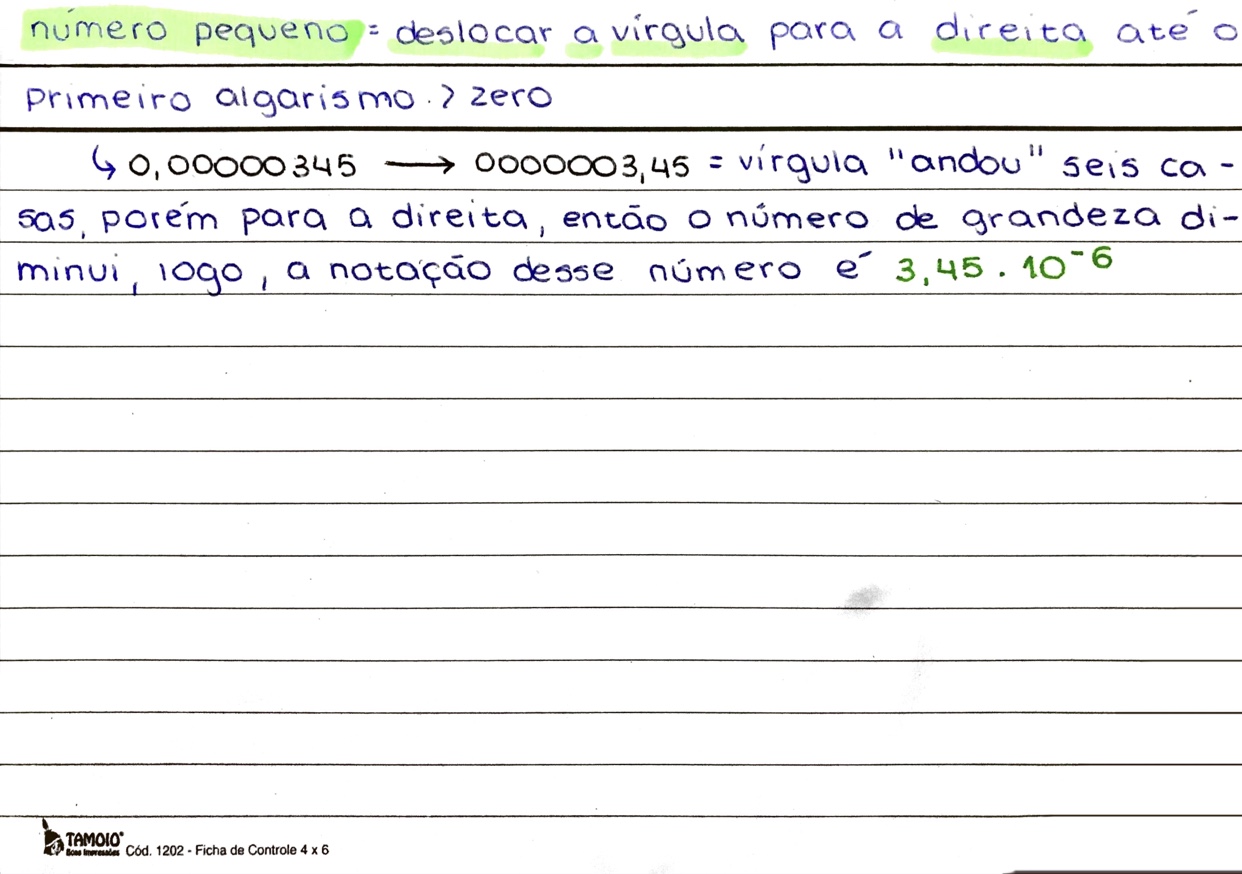 número pequeno = deslocar a vírgula para a direita até o
primeiro algarismo > zero
↳ 0,00000345 → 0000003,45 = vírgula "andou" seis ca-
sas, porém para a direita, então o número de grandeza di-
minui, logo, a notação desse número é 3,45 . 10⁻⁶
TAMOIO
Boas Impressões Cód. 1202 - Ficha de Controle 4 x 6